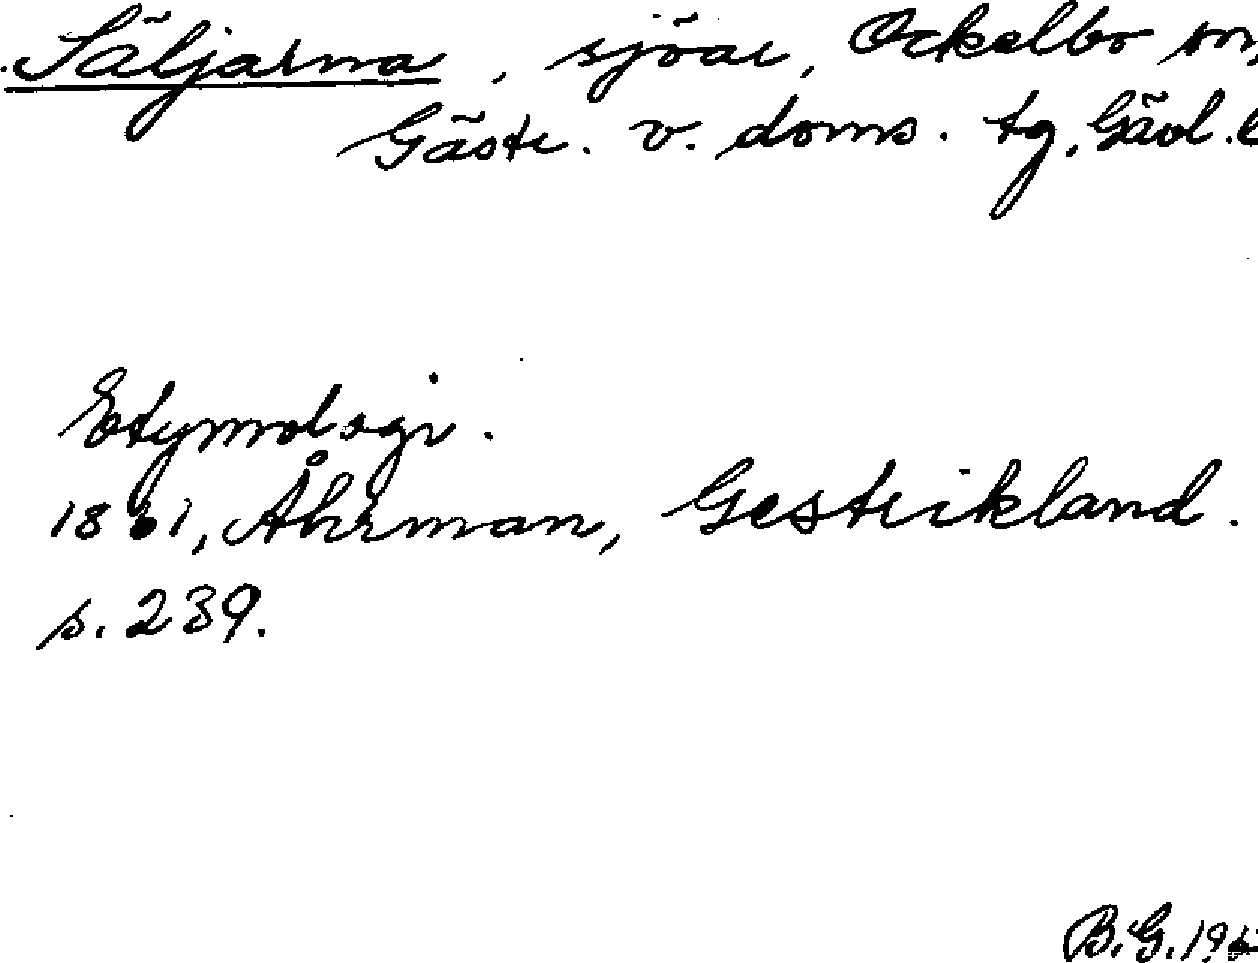 Säljarna, sjöar, Ockelbo sn,
Gästr. v. doms. tg, Gävl. l
Etymologi.
1861, Åhrman, Gestrikland.
s. 239.
B.G. 196